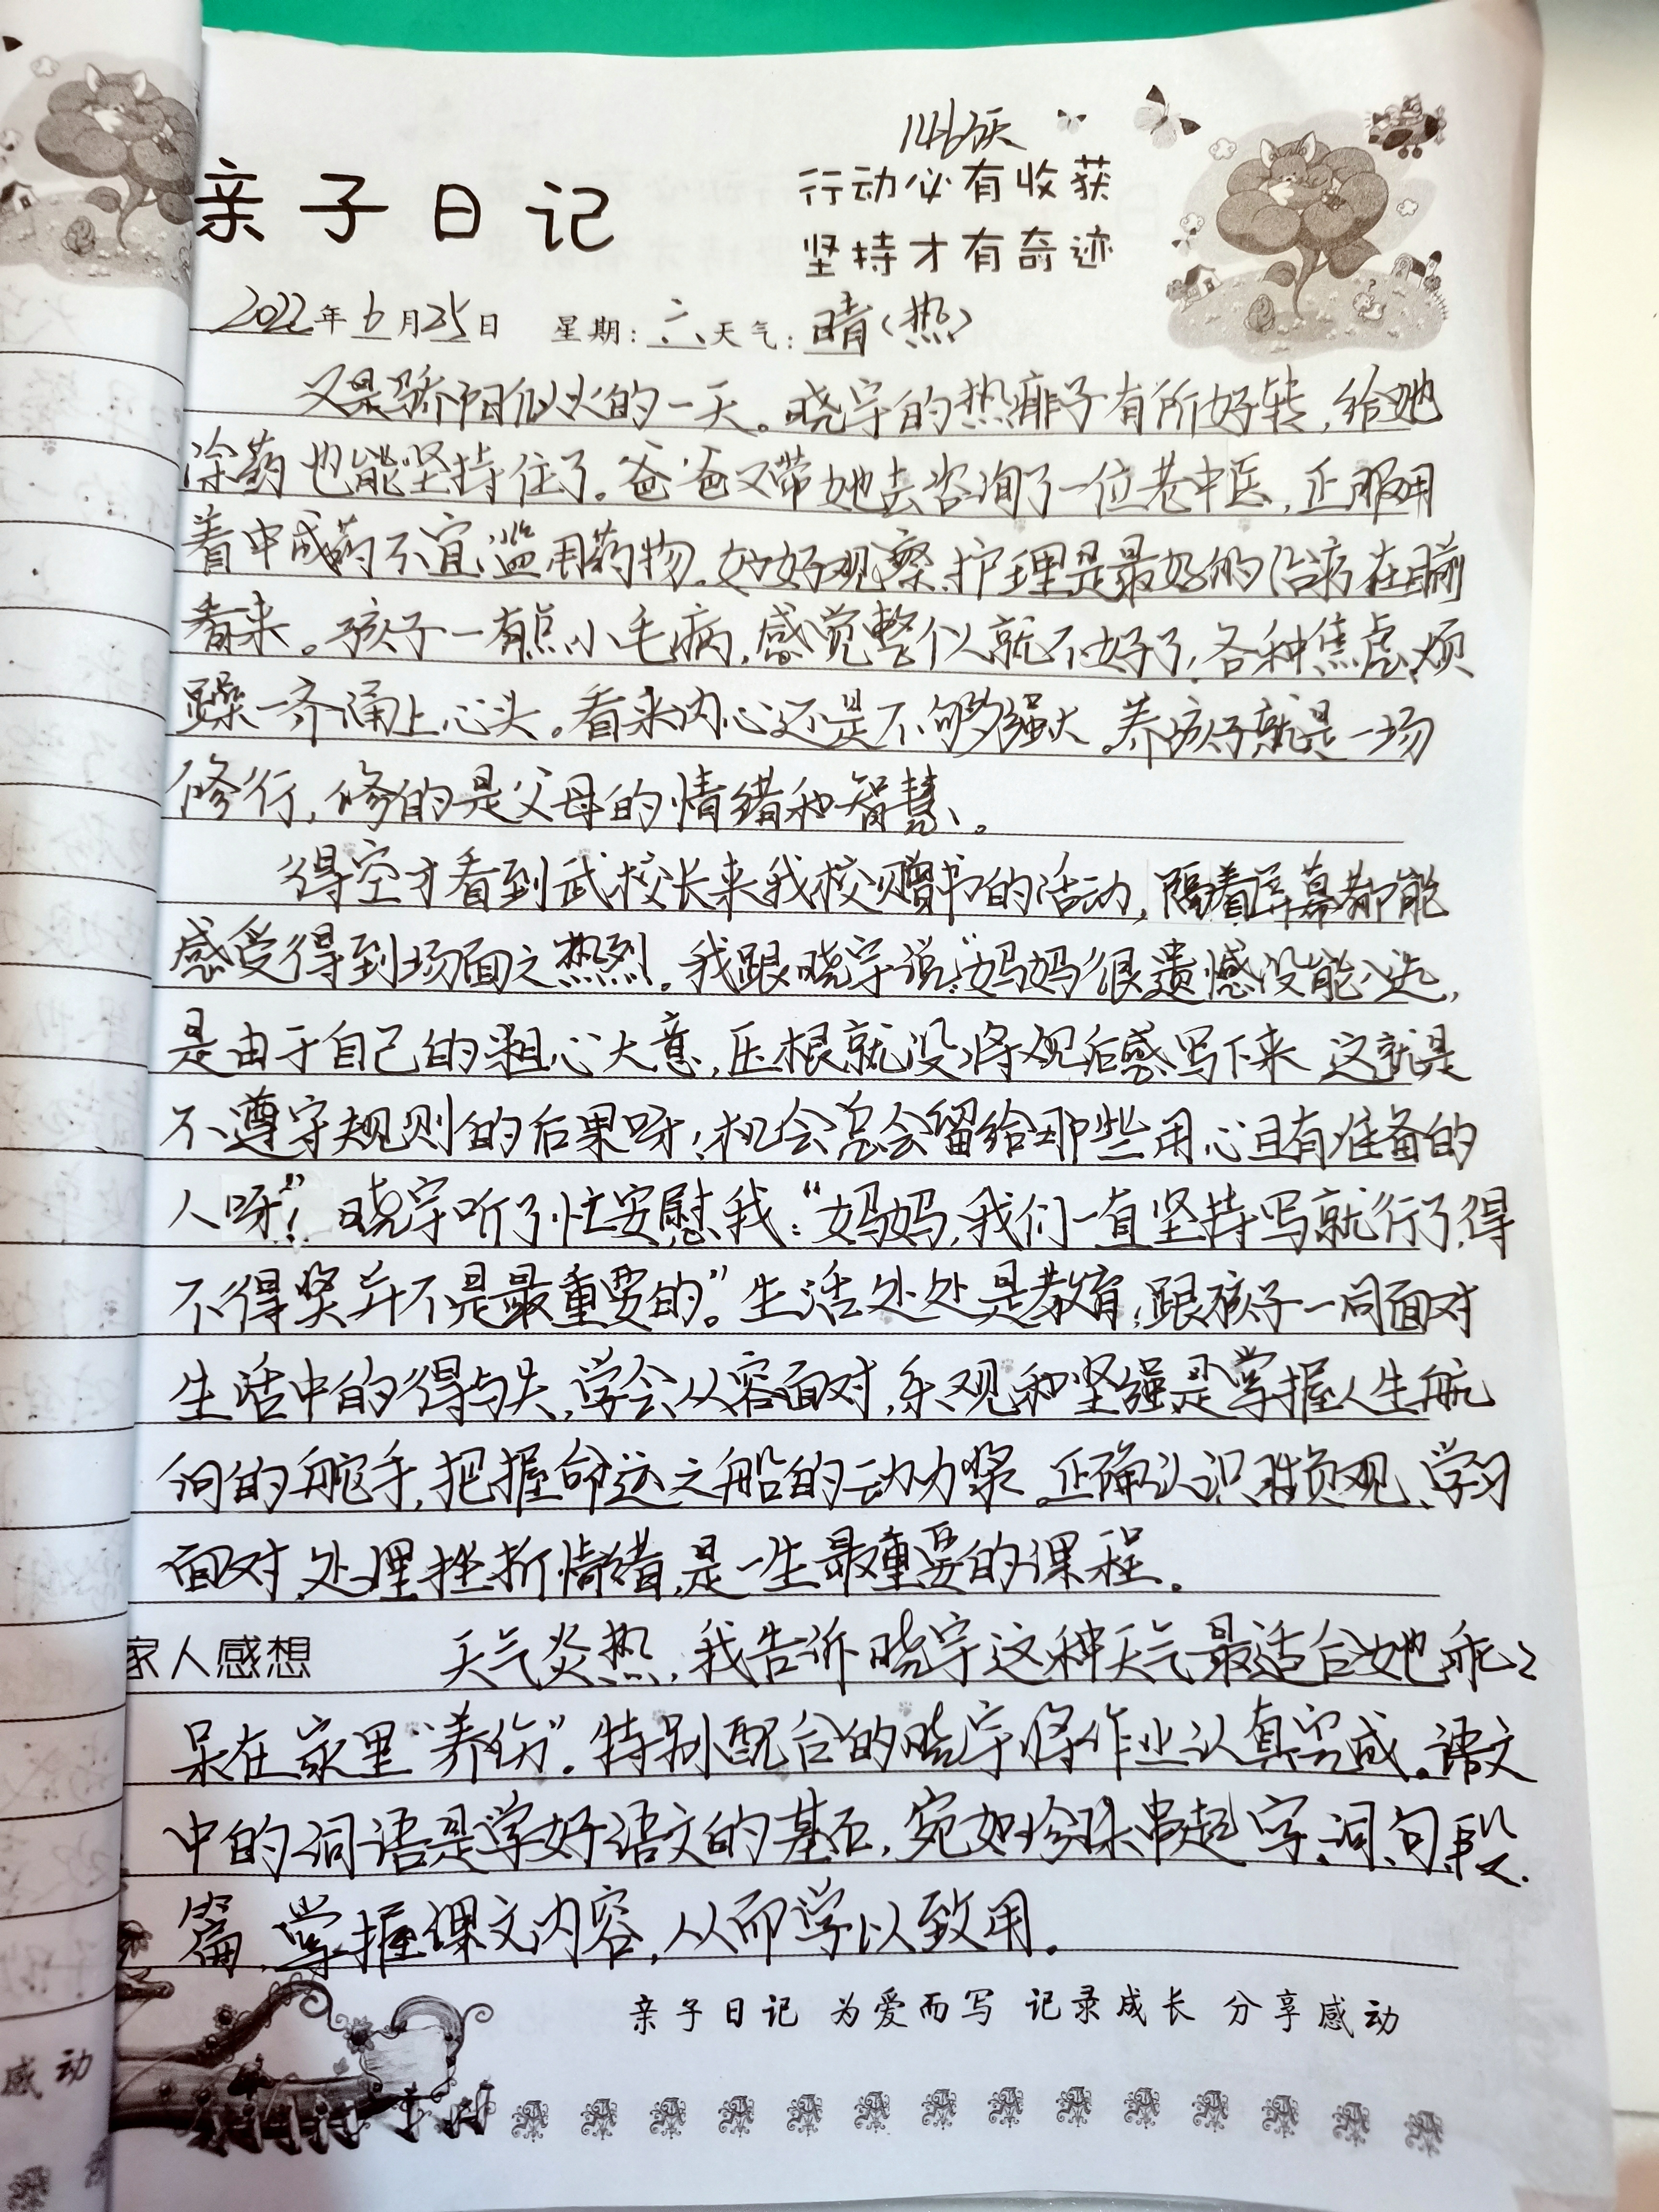 146天
亲子日记
行动必有收获
坚持才有奇迹
2022年6月25日 星期:六天气:晴(热)
又是骄阳似火的一天。晓宇的热痱子有所好转,给她
涂药也能坚持住了。爸爸又带她去咨询了一位老中医,正服用
着中成药不宜滥用药物。好好观察、护理是最好的治疗在目前
看来。孩子一有点小毛病,感觉整个人就不好了,各种焦虑、烦
躁一齐涌上心头。看来内心还是不够强大。养孩子就是一场
修行,修的是父母的情绪和智慧。
得空才看到武校长来我校赠书的活动,隔着屏幕都能
感受得到场面之热烈。我跟晓宇说:“妈妈很遗憾没能入选,
是由于自己的粗心大意,压根就没将观后感写下来 这就是
不遵守规则的后果呀!机会总会留给那些用心且有准备的
人呀!”晓宇听了忙安慰我:“妈妈,我们一直坚持写就行了,得
不得奖并不是最重要的。”生活处处是教育,跟孩子一同面对
生活中的得与失,学会从容面对,乐观和坚强是掌握人生航
向的舵手,把握命运之船的动力桨。正确认识胜负观、学习
面对、处理挫折情绪,是一生最重要的课程。
家人感想 天气炎热,我告诉晓宇这种天气最适合她乖乖
呆在家里“养伤”。特别配合的晓宇将作业认真完成。语文
中的词语是学好语文的基石,宛如珍珠串起字、词、句、段、
篇,掌握课文内容,从而学以致用。
亲子日记 为爱而写 记录成长 分享感动
感动